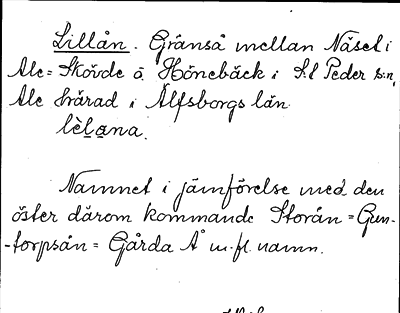 Lillån. Gränså mellan Näset i
Ale-Skövde o. Hönebäck i S:t Peder s:n,
Ale härad i Älfsborgs län.
lèlana.
Namnet i jämförelse med den
öster därom kommande Storån = Gun-
-torpsån = Gårda Å m. fl. namn.